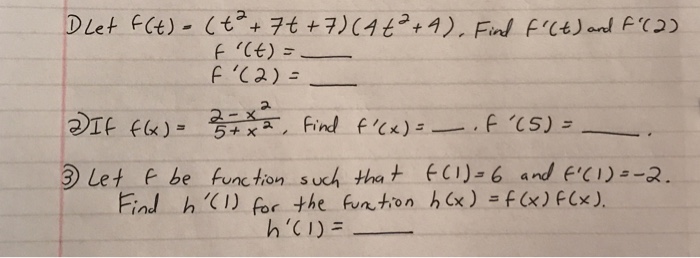 ① Let f(t) = (t² + 7t + 7)(4t² + 4). Find f'(t) and f'(2)
f'(t) = ____
f'(2) = ____
② If f(x) = (2-x²)/(5+x²), find f'(x) = __. f'(5) = ____.
③ Let f be function such that f(1)=6 and f'(1)=-2.
Find h'(1) for the function h(x) = f(x) f(x).
h'(1) = ____